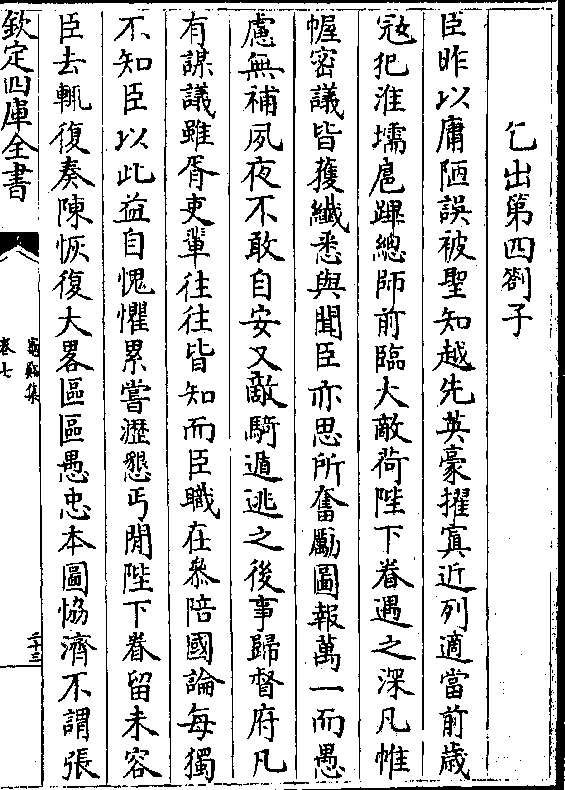 乞出第四劄子
臣昨以庸陋誤被聖知越先英豪擢寘近列適當前歳
冦犯淮壖扈蹕總師前臨大敵荷陛下眷遇之深凡帷
幄密議皆獲纎悉與聞臣亦思所奮勵圖報萬一而愚
慮無補夙夜不敢自安又敵騎遁逃之後事歸督府凡
有謀議雖胥吏軰往往皆知而臣職在叅陪國論每獨
不知臣以此益自愧懼累嘗瀝懇丐閒陛下眷留未容
臣去輒復奏陳恢復大畧區區愚忠本圖恊濟不謂張
欽定四庫全書
龜谿集
卷七
二十三